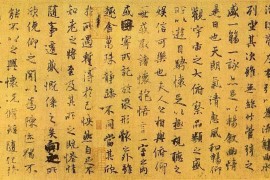 列坐其次雖無絲竹管弦之
盛一觴一詠亦足以暢敘幽情
是日也天朗氣清惠風和暢仰
觀宇宙之大俯察品類之盛
所以遊目騁懷足以極視聽之
娛信可樂也夫人之相與俯仰
一世或取諸懷抱悟言一室之內
或因寄所託放浪形骸之外雖
趣舍萬殊靜躁不同當其欣
於所遇暫得於己怏然自足不
知老之將至及其所之既惓情
隨事遷感慨係之矣向之所
欣俛仰之閒以為陳迹猶不
能不以之興懷況脩短隨化